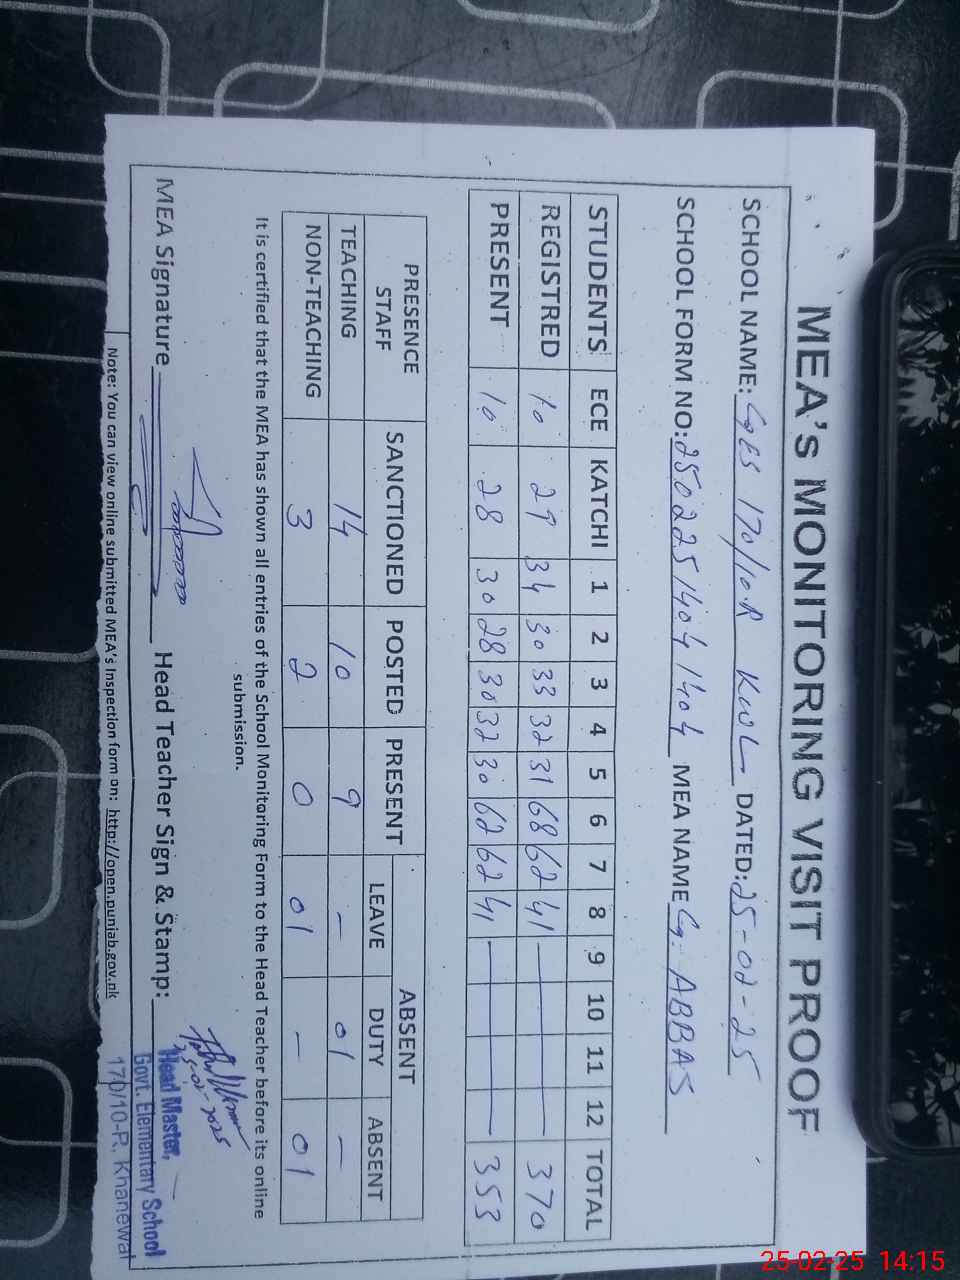 MEA's MONITORING VISIT PROOF
SCHOOL NAME: GES 170/10.R KWL DATED: 25-02-25
SCHOOL FORM NO: 25022514041404 MEA NAME G. ABBAS
STUDENTS ECE KATCHI 1 2 3 4 5 6 7 8 9 10 11 12 TOTAL
REGISTRED 10 29 34 30 33 32 31 68 62 41 — 370
PRESENT 10 28 30 28 30 32 30 62 62 41 — 353
PRESENCE STAFF SANCTIONED POSTED PRESENT ABSENT
LEAVE DUTY ABSENT
TEACHING 14 10 9 - 01 -
NON-TEACHING 3 2 0 01 - 01
It is certified that the MEA has shown all entries of the School Monitoring Form to the Head Teacher before its online
submission.
MEA Signature Head Teacher Sign & Stamp:
25-02-2025
Head Master,
Govt. Elementary School
170/10-R, Khanewal
Note: You can view online submitted MEA's Inspection form on: http://open.punjab.gov.pk
25-02-25 14:15